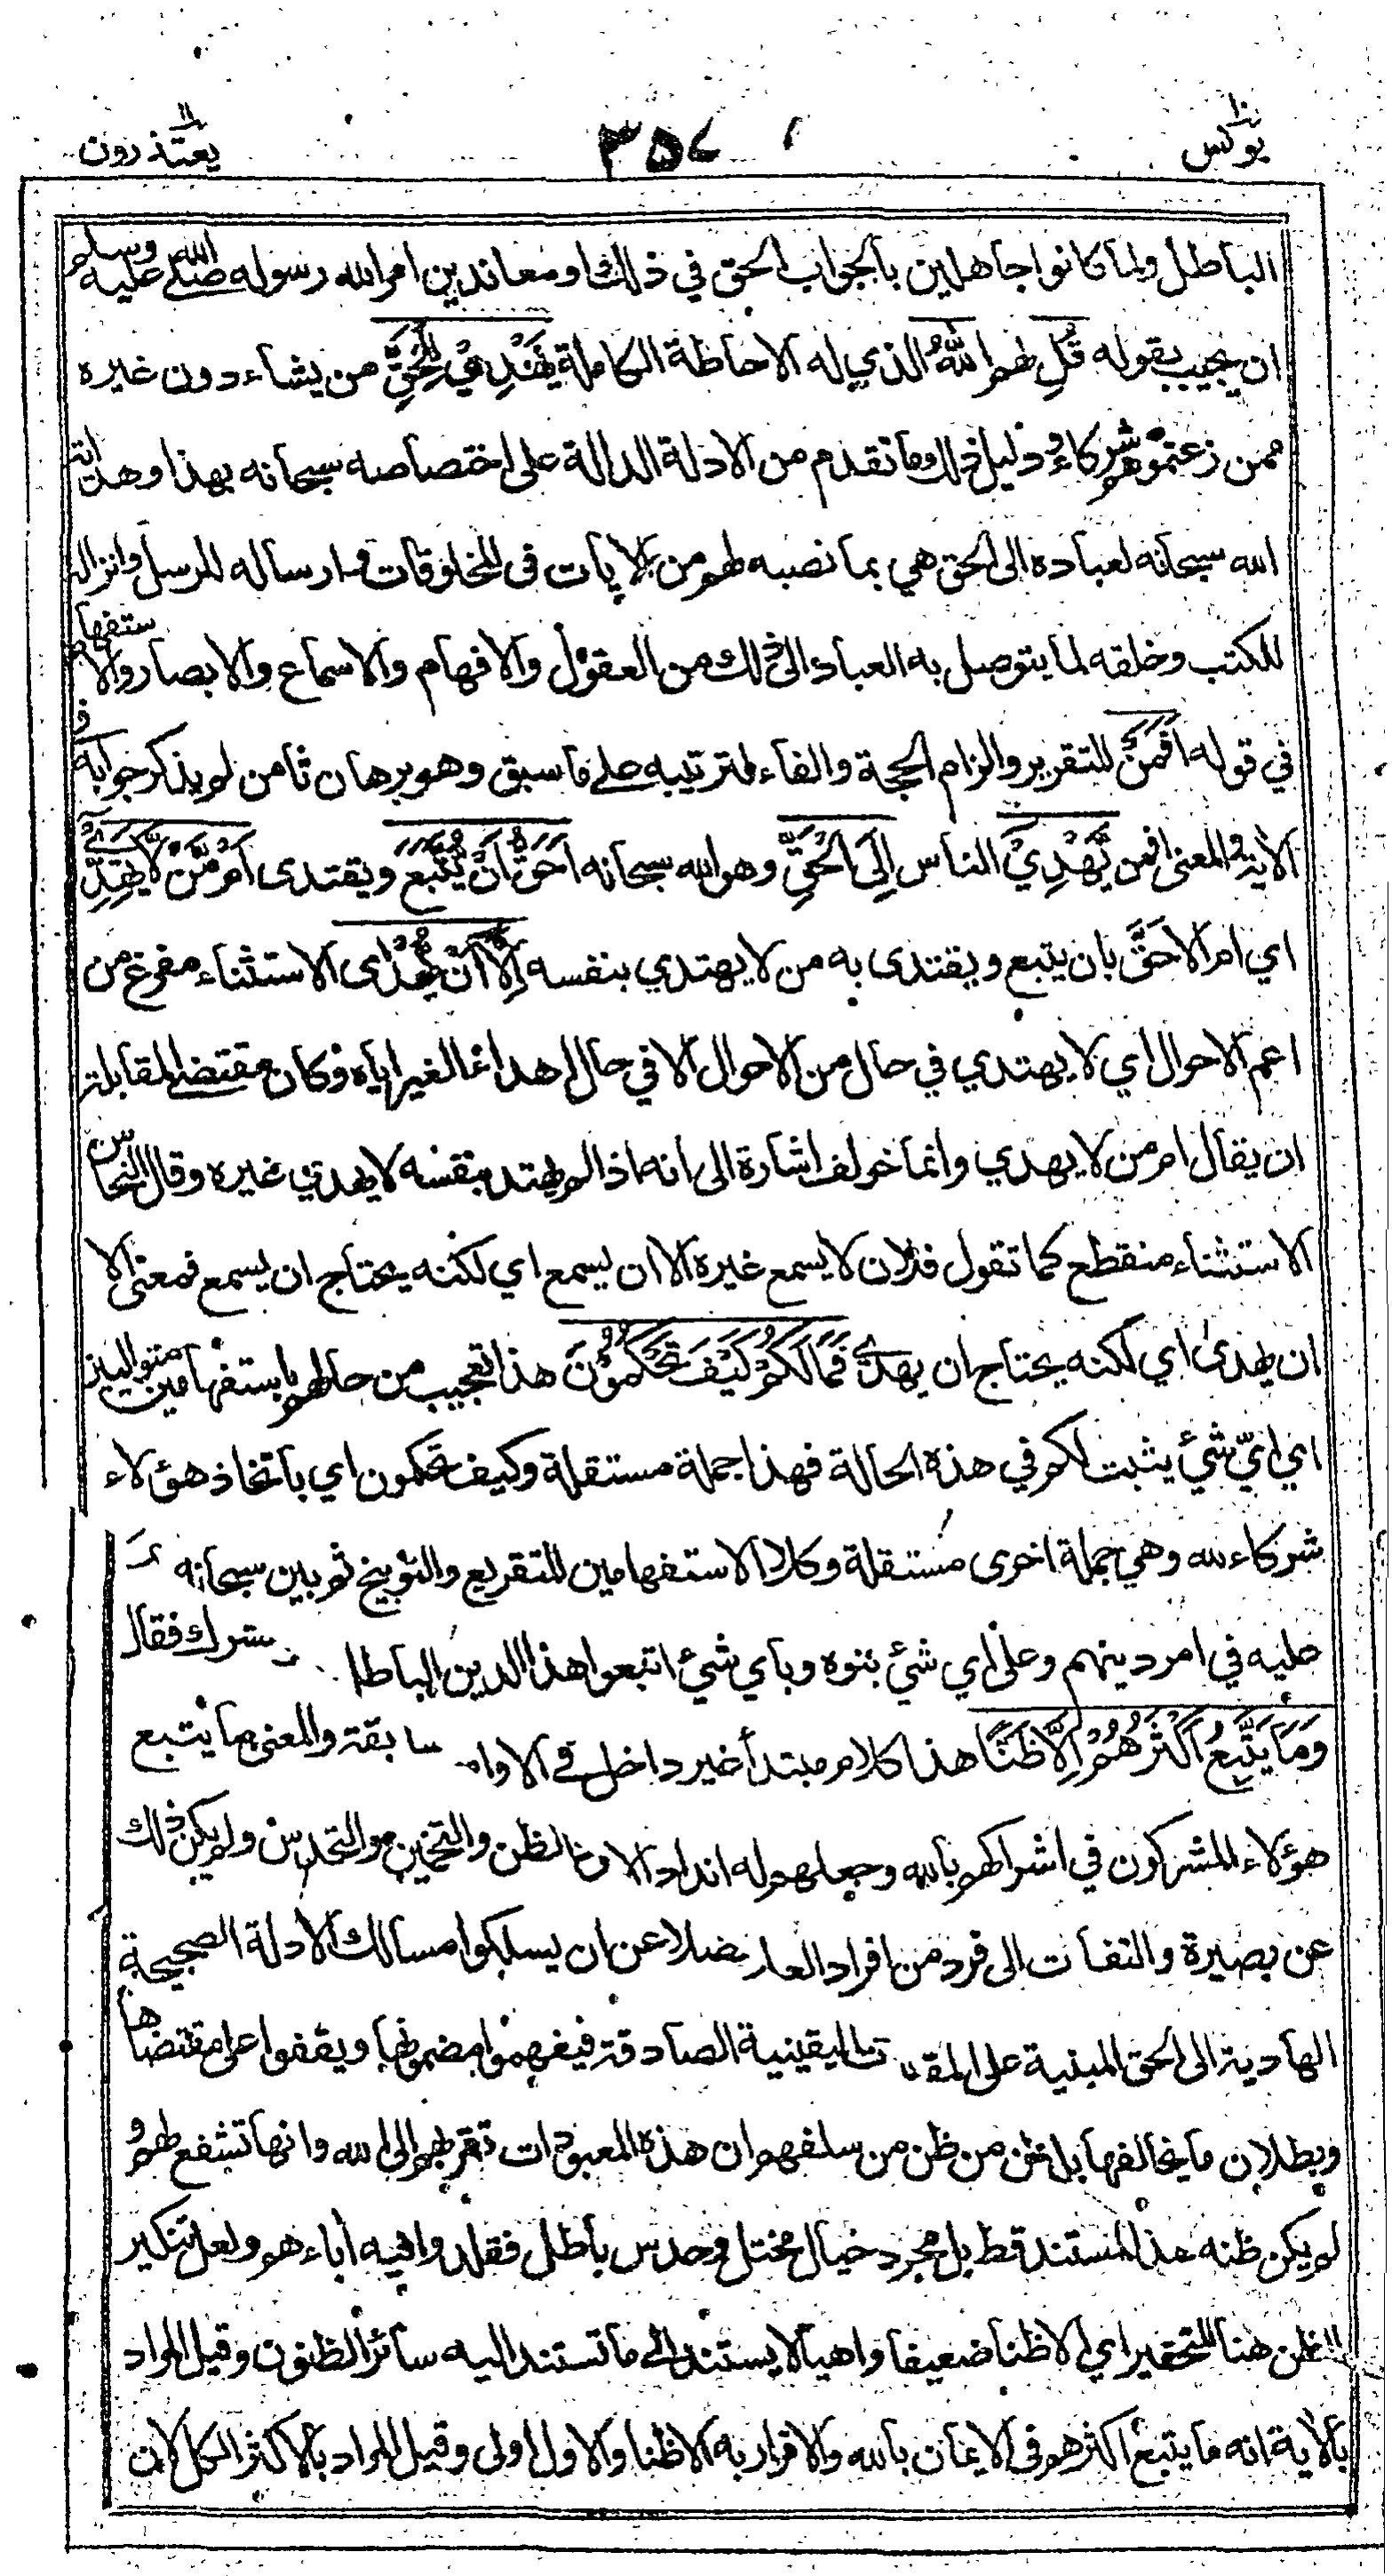 يونس ١٠
٣٥٧
يعتذرون ١١
الباطل ولما كانوا جاهلين بالجواب الحق في ذلك او معاندين امر الله رسوله صلى الله عليه وسلم
ان يجيب بقوله قُلِ لهم اللّٰهُ الذي له الاحاطة الكاملة يَهْدِيْ لِلْحَقِّ من يشاء دون غيره
ممن زعمتموهم شركاء ودليل ذلك ما تقدم من الادلة الدالة على اختصاصه سبحانه بهذا وهداية
الله سبحانه لعباده الى الحق هي بما نصبه لهم من الايات في المخلوقات وارساله للرسل وانزاله
للكتب وخلقه لما يتوصل به العباد الى ذلك من العقول والافهام والاسماع والابصار والاستفهام
في قوله اَفَمَنْ للتقرير والزام الحجة والفاء لترتيبه على ما سبق وهو برهان ثامن لم يذكر جوابه في
الاية والمعنى افمن يَّهْدِيْ الناس اِلَى الْحَقِّ وهو الله سبحانه اَحَقُّ اَنْ يُّتَّبَعَ ويقتدى اَمْ مَّنْ لَّا يَهِدِّيْ
اي ام الاحق بان يتبع ويقتدى به من لا يهتدي بنفسه اِلَّا اَنْ يُّهْدٰى الاستثناء مفرغ من
اعم الاحوال اي لا يهتدي في حال من الاحوال الا في حال اهداء الغير اياه وكان مقتضى المقابلة
ان يقال ام من لا يهدي وانما خولف اشارة الى انه اذا لم يهتد بنفسه لا يهدي غيره وقال النحاس
الاستثناء منقطع كما تقول فلان لا يسمع غيره الا ان يسمع اي لكنه يحتاج ان يسمع فمعنى الا
ان يهدى اي لكنه يحتاج ان يهدى فَمَا لَكُمْ كَيْفَ تَحْكُمُوْنَ هذا تعجيب من حالهم باستفهامين متواليين
اي ايّ شيء يثبت لكم في هذه الحالة فهذا جملة مستقلة وكيف تحكمون اي باتخاذ هؤلاء
شركاء لله وهي جملة اخرى مستقلة وكلا الاستفهامين للتقريع والتوبيخ ثم بين سبحانه
عليه في امر دينهم وعلى اي شيء بنوه وباي شيء اتبعوا هذا الدين الباطل الشرك فقال
وَمَا يَتَّبِعُ اَكْثَرُهُمْ اِلَّا ظَنًّا هذا كلام مبتدأ غير داخل في الاوامر السابقة والمعنى ما يتبع
هؤلاء المشركون في اشراكهم بالله وجعلهم له اندادا الا الظن والتخمين والتحدس ولم يكن ذلك
عن بصيرة والتفات الى فرد من افراد العلم فضلا عن ان يسلكوا مسالك الادلة الصحيحة
الهادية الى الحق المبنية على المقدمات اليقينية الصادقة فيفهموا مضمونها ويقفوا على مقتضاها
وبطلان ما يخالفها بل ظن من ظن من سلفهم ان هذه المعبودات تقربهم الى الله وانها تشفع لهم و
لم يكن ظنه هذا لمستند قط بل مجرد خيال مختل وحدس باطل فقلدوا فيه اباءهم ولعل تنكير
الظن هنا للتحقير اي الا ظنا ضعيفا واهيا لا يستند الى ما تستند اليه سائر الظنون وقيل المراد
بالاية انه ما يتبع اكثرهم في الايمان بالله والاقرار به الا ظنا والاول اولى وقيل المراد بالاكثر الكل لان